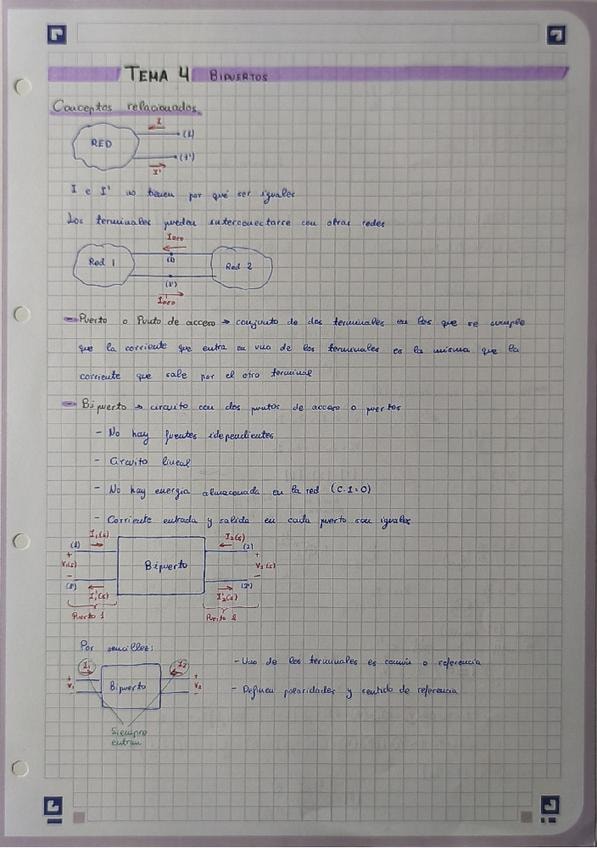 TEMA 4 BIPUERTOS
Conceptos relacionados
I
RED
(1)
(1')
I'
I e I' no tienen por qué ser iguales
Los terminales pueden interconectarse con otras redes
Red 1
(1)
Red 2
(1')
Puerto o Punto de acceso → conjunto de dos terminales en los que se cumple
que la corriente que entra en uno de los terminales es la misma que la
corriente que sale por el otro terminal
Bipuerto → circuito con dos puntos de acceso o puertos
- No hay fuentes idependientes
- Circuito lineal
- No hay energía almacenada en la red (C.I=0)
- Corriente entrada y salida en cada puerto son iguales
(1) I₁(s) I₂(s) (2)
+ V₁(s) - Bipuerto + V₂(s) -
(1') I₁'(s) I₂'(s) (2')
Puerto 1 Puerto 2
Por sencillez:
I₁ I₂
- Uno de los terminales es común o referencia
+ V₁ - Bipuerto + V₂ -
- Definen polaridades y sentido de referencia
Siempre
entran